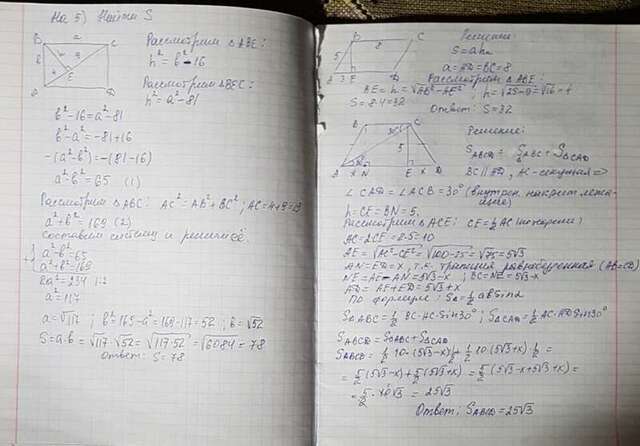 На 5) Найти S
B a C
h 9
4 E
A D
Рассмотрим △ABE:
h² = b² - 16
Рассмотрим △BEC:
h² = a² - 81
b² - 16 = a² - 81
b² - a² = -81 + 16
-(a² - b²) = -(81 - 16)
a² - b² = 65 (1)
Рассмотрим △ABC: AC² = AB² + BC²; AC = 4 + 9 = 13
a² + b² = 169 (2)
Составим систему и решим её.
a² - b² = 65
a² + b² = 169
2a² = 234 |:2
a² = 117
a = √117 ; b² = 169 - a² = 169 - 117 = 52 ; b = √52
S = a·b = √117 · √52 = √117·52 = √6084 = 78
Ответ: S = 78
B 8 C
5
A 3 E D
Решение:
S = ah
a = AD = BC = 8
Рассмотрим △ABE:
BE = h = √AB² - AE² ; h = √25 - 9 = √16 = 4
S = 8·4 = 32
Ответ: S = 32
B C
30° 5
A x N E x D
Решение:
S ABCD = S△ABC + S△CAD
BC || AD, AC - секущая =>
∠CAD = ∠ACB = 30° (внутрен. накрест лежащие)
h = CE = BN = 5.
Рассмотрим △ACE: CE = ½ AC (по теореме)
AC = 2CE = 2·5 = 10
AE = √AC² - CE² = √100 - 25 = √75 = 5√3
AN = ED = x, т.к. трапеция равнобедренная (AB = CD)
NE = AE - AN = 5√3 - x ; BC = NE = 5√3 - x
AD = AE + ED = 5√3 + x
По формуле: S△ = ½ ab sinα
S△ABC = ½ BC·AC·sin30° ; S△CAD = ½ AC·AD·sin30°
S ABCD = S△ABC + S△CAD
S ABCD = ½·10·(5√3 - x)·½ + ½·10·(5√3 + x)·½ =
= 5/2 (5√3 - x) + 5/2 (5√3 + x) = 5/2 (5√3 - x + 5√3 + x) =
= 5/2 · 10√3 = 25√3
Ответ: S ABCD = 25√3